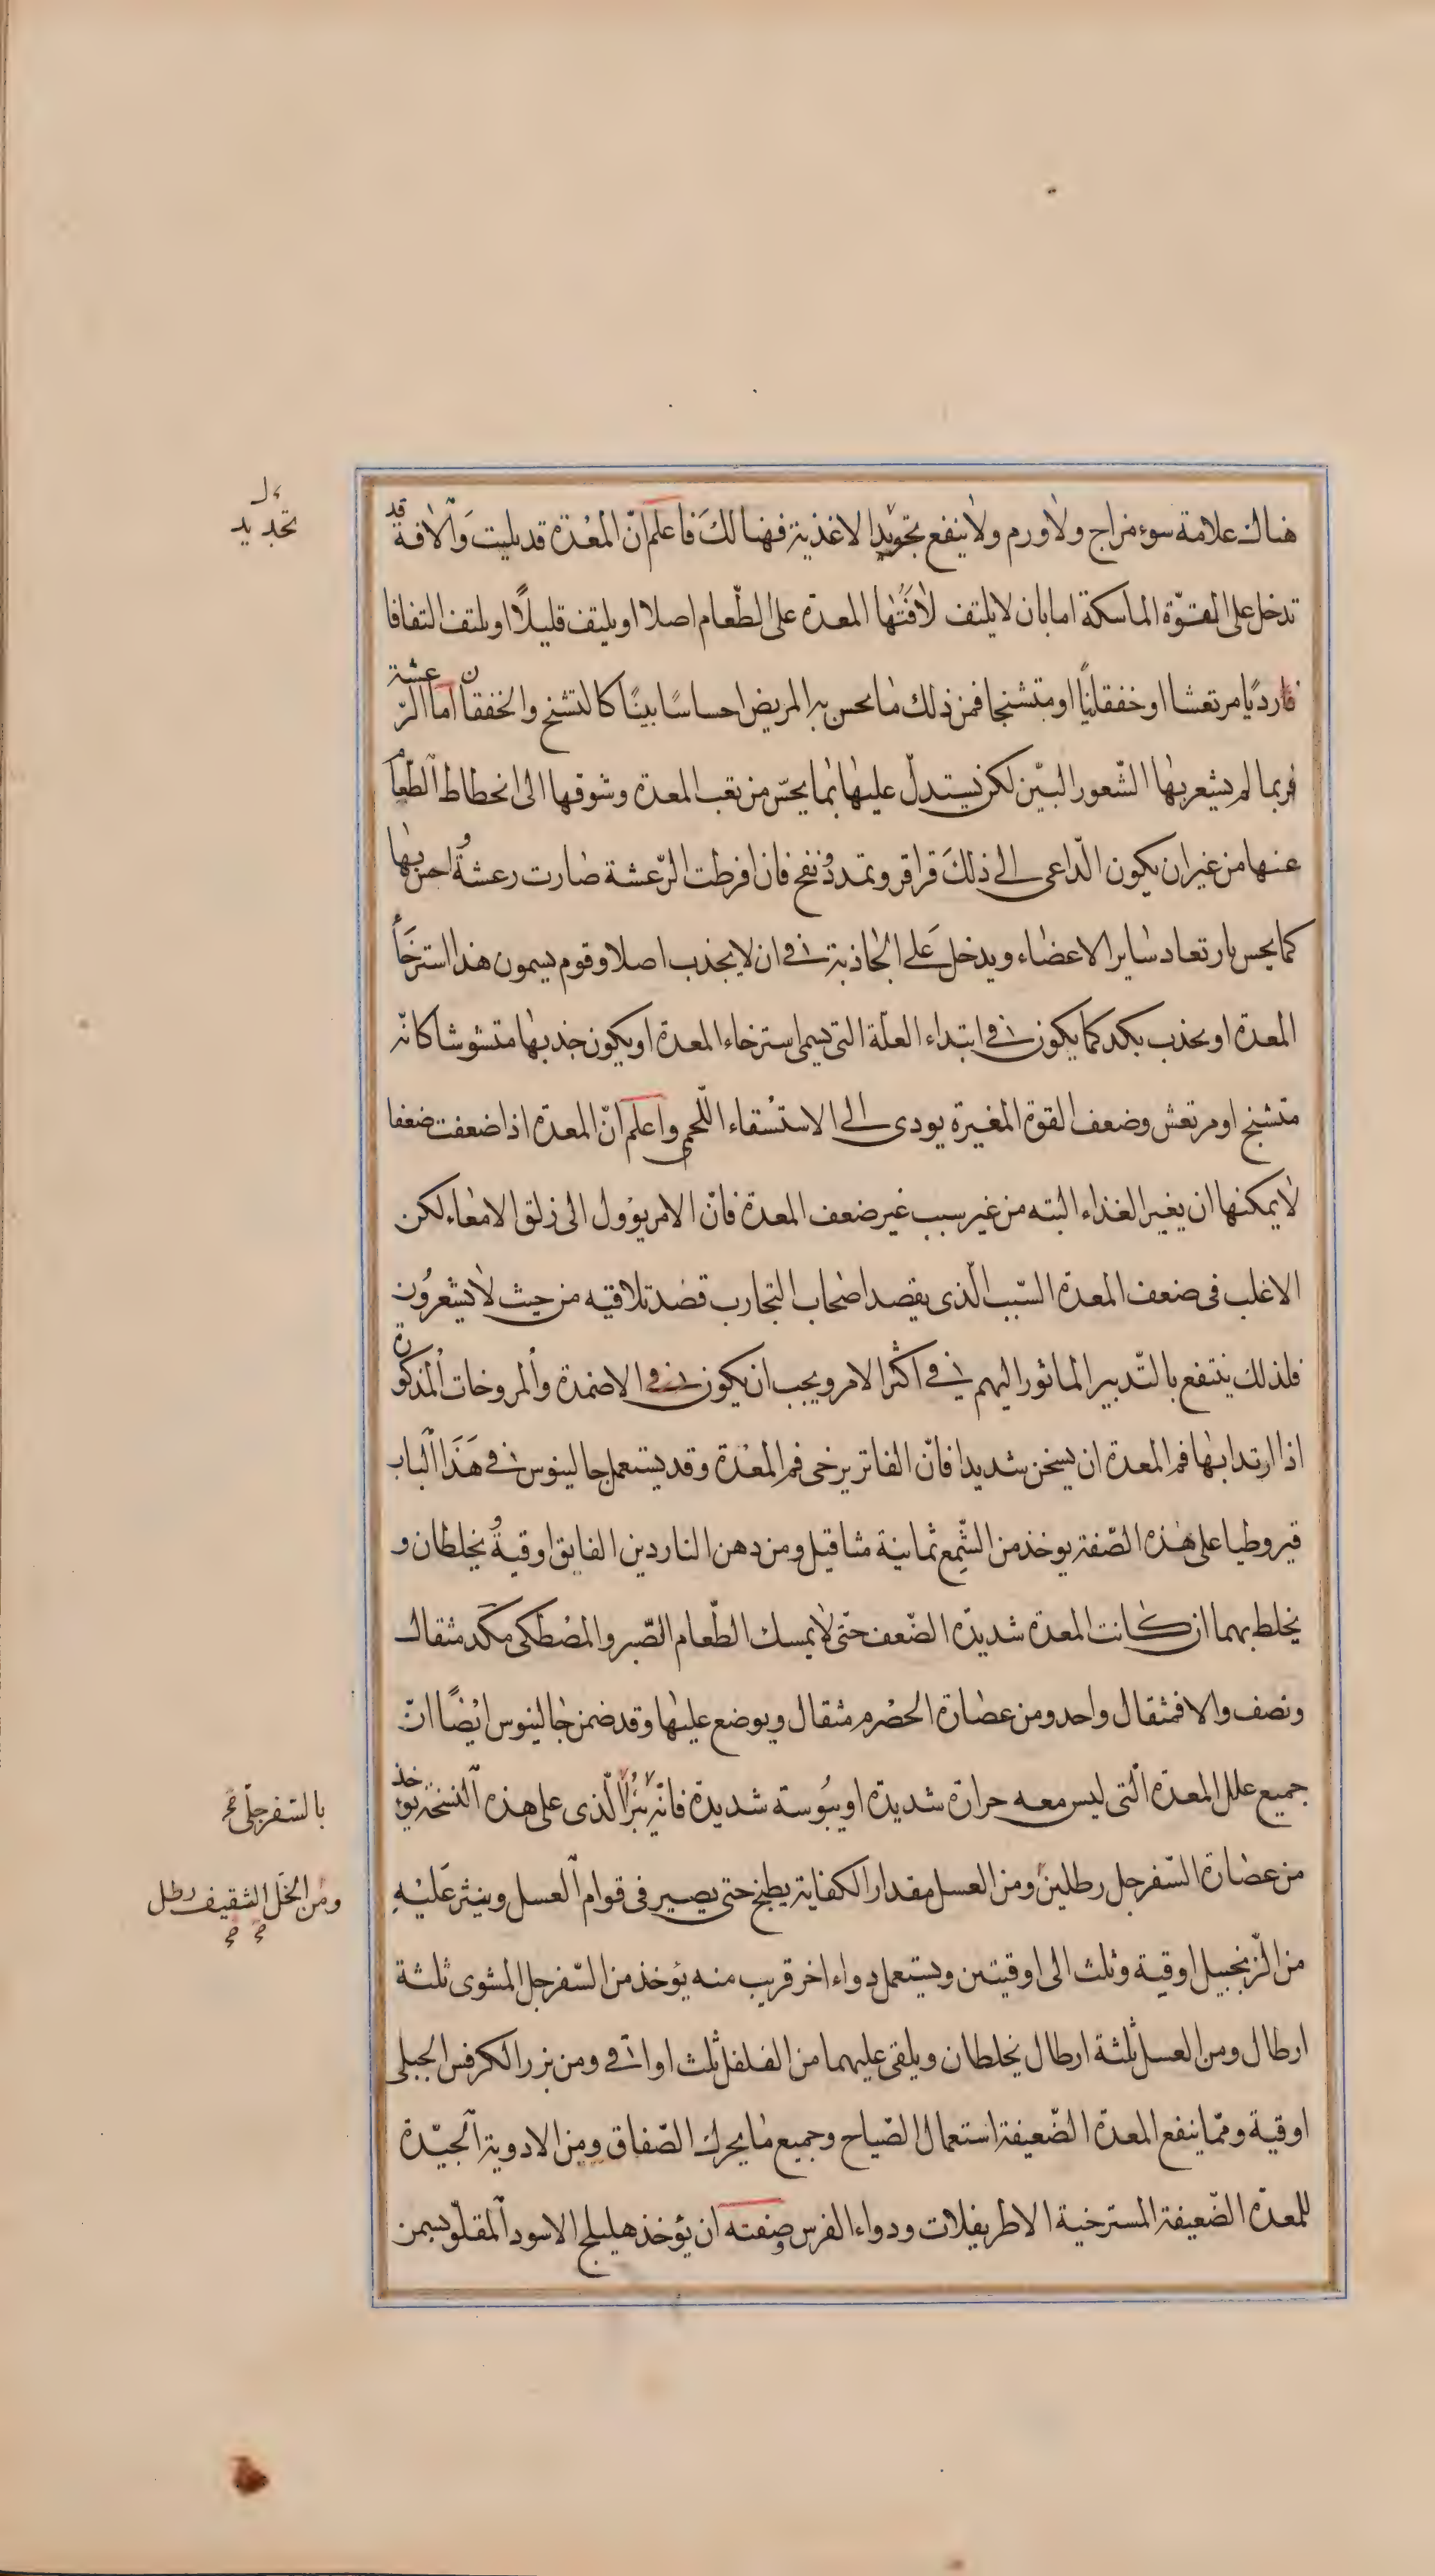 هناك علامة سوء مزاج ولا ورم ولا ينفع تجويد الاغذية فهنالك فاعلم ان المعدة قد بليت والافة قد
تدخل على القوة الماسكة اما بان لا يلتف لافتها المعدة على الطعام اصلا او يلتف قليلا او يلتف التفافا
رديا مرتعشا او خفقانيا او متشنجا فمن ذلك ما يحس به المريض احساسا بينا كالتشنج والخفقان اما الرعشة
فربما لم يشعر بها الشعور البين لكن يستدل عليها بما يحس من تعب المعدة وشوقها الى انحطاط الطعام
عنها من غير ان يكون الداعى الى ذلك قراقر وتمدد ونفخ فان افرطت الرعشة صارت رعشة احس بها
كما يحس بارتعاد ساير الاعضاء ويدخل على الجاذبة فى ان لا يجذب اصلا وقوم يسمون هذا استرخاء
المعدة او يجذب بكد كما يكون فى ابتداء العلة التى تسمى استرخاء المعدة او يكون جذبها متشوشا كانه
متشنج او مرتعش وضعف القوة المغيرة يودى الى الاستسقاء اللحمى واعلم ان المعدة اذا ضعفت ضعفا
لا يمكنها ان يغير الغذاء البته من غير سبب غير ضعف المعدة فان الامر يؤول الى زلق الامعاء لكن
الاغلب فى ضعف المعدة السبب الذى يقصد اصحاب التجارب قصد تلافيه من حيث لا يشعرون
فلذلك ينتفع بالتدبير الماثور اليهم فى اكثر الامر ويجب ان يكون فى الاضمدة والمروخات المذكورة
اذا اريد بها فم المعدة ان يسخن شديدا فان الفاتر يرخى فم المعدة وقد يستعمل جالينوس فى هذا الباب
قيروطيا على هذه الصفة يوخذ من الشمع ثمانية مثاقيل ومن دهن الناردين الفايق اوقية ويخلطان و
يخلط بهما ان كانت المعدة شديدة الضعف حتى لا يمسك الطعام الصبر والمصطكى مكد مثقال
ونصف والا فمثقال واحد ومن عصارة الحصرم مثقال ويوضع عليها وقد ضمن جالينوس ايضا ان
جميع علل المعدة التى ليس معه حرارة شديدة او يبوسة شديدة فانه يبرا الذى على هذه النسخة يوخذ
من عصارة السفرجل رطلين ومن العسل مقدار الكفاية يطبخ حتى يصير فى قوام العسل وينثر عليه
من الزنجبيل اوقية وثلث الى اوقيتين ويستعمل دواء اخر قريب منه يؤخذ من السفرجل المشوى ثلثة
ارطال ومن العسل ثلثة ارطال يخلطان ويلقى عليهما من الفلفل ثلث اواقى ومن بزر الكرفس الجبلى
اوقية ومما ينفع المعدة الضعيفة استعمال الصياح وجميع ما يحرك الصفاق ومن الادوية الجيدة
للمعدة الضعيفة المسترخية الاطريفلات ودواء الفرس وصفته ان يؤخذ هليلج الاسود المقلو بسمن
تجديد
بالسفرجلى صح
ومن الخل الثقيف رطل
صح صح